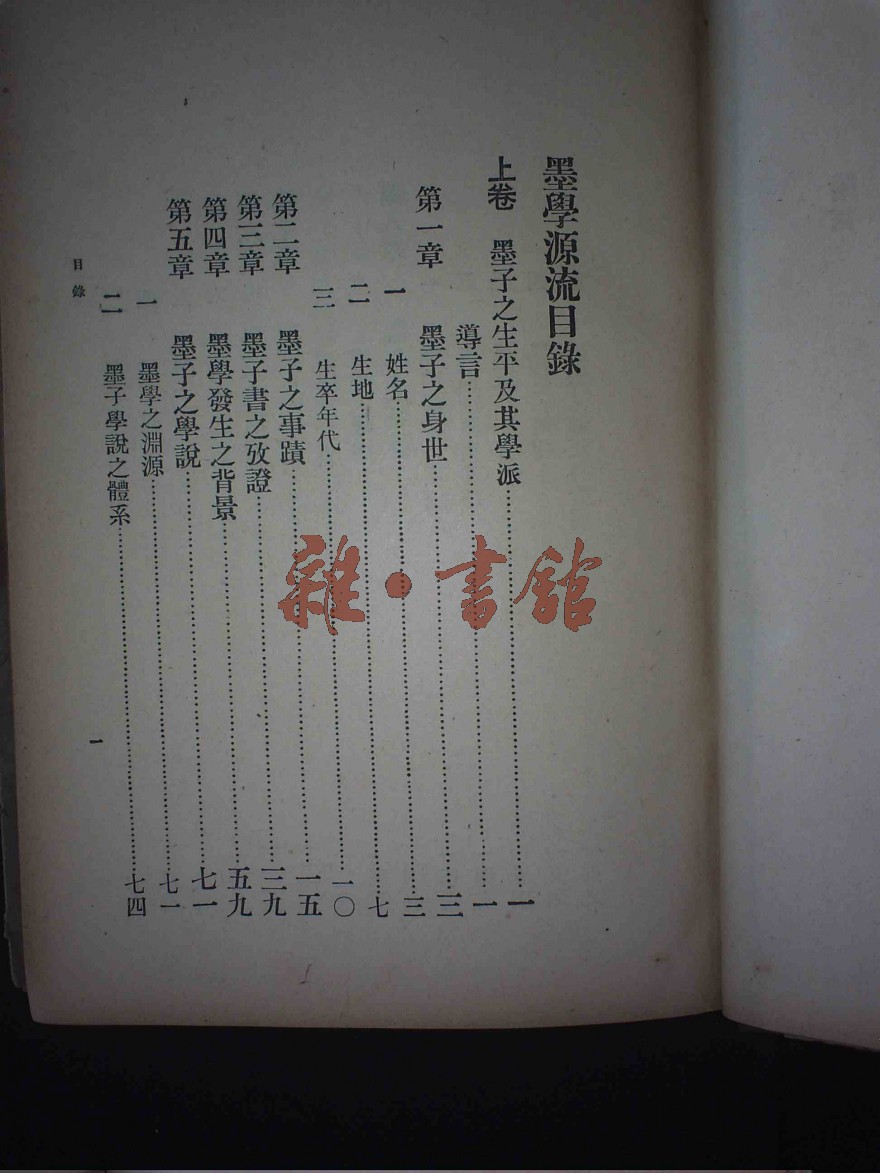 墨學源流目錄
上卷 墨子之生平及其學派……一
導言……一
第一章 墨子之身世……三
一 姓名……三
二 生地……七
三 生卒年代……一〇
第二章 墨子之事蹟……一五
第三章 墨子書之攷證……三九
第四章 墨學發生之背景……五九
第五章 墨子之學說……七一
一 墨學之淵源……七一
二 墨子學說之體系……七四
目錄
一
雜·書館